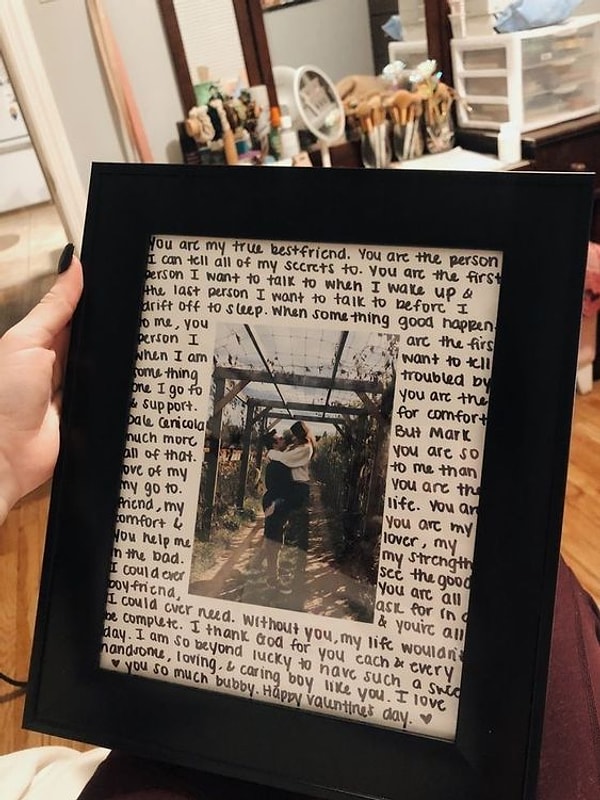 You are my true bestfriend. You are the person
I can tell all of my secrets to. You are the first
person I want to talk to when I wake up &
the last person I want to talk to before I
drift off to sleep. When something good happen
to me, you are the firs
person I want to tell
When I am troubled by
something you are the
one I go to for comfort
& support. But Mark
Dale Cenicola you are so
much more to me than
all of that. You are the
love of my life. You are
my go to. You are my
friend, my lover, my
comfort & my strength
You help me see the good
in the bad. You are all
I could ever ask for in a
boyfriend, & you're all
I could ever need. Without you, my life wouldn't
be complete. I thank God for you each & every
day. I am so beyond lucky to have such a swee
handsome, loving, & caring boy like you. I love
♥ you so much bubby. Happy Valentines day. ♥